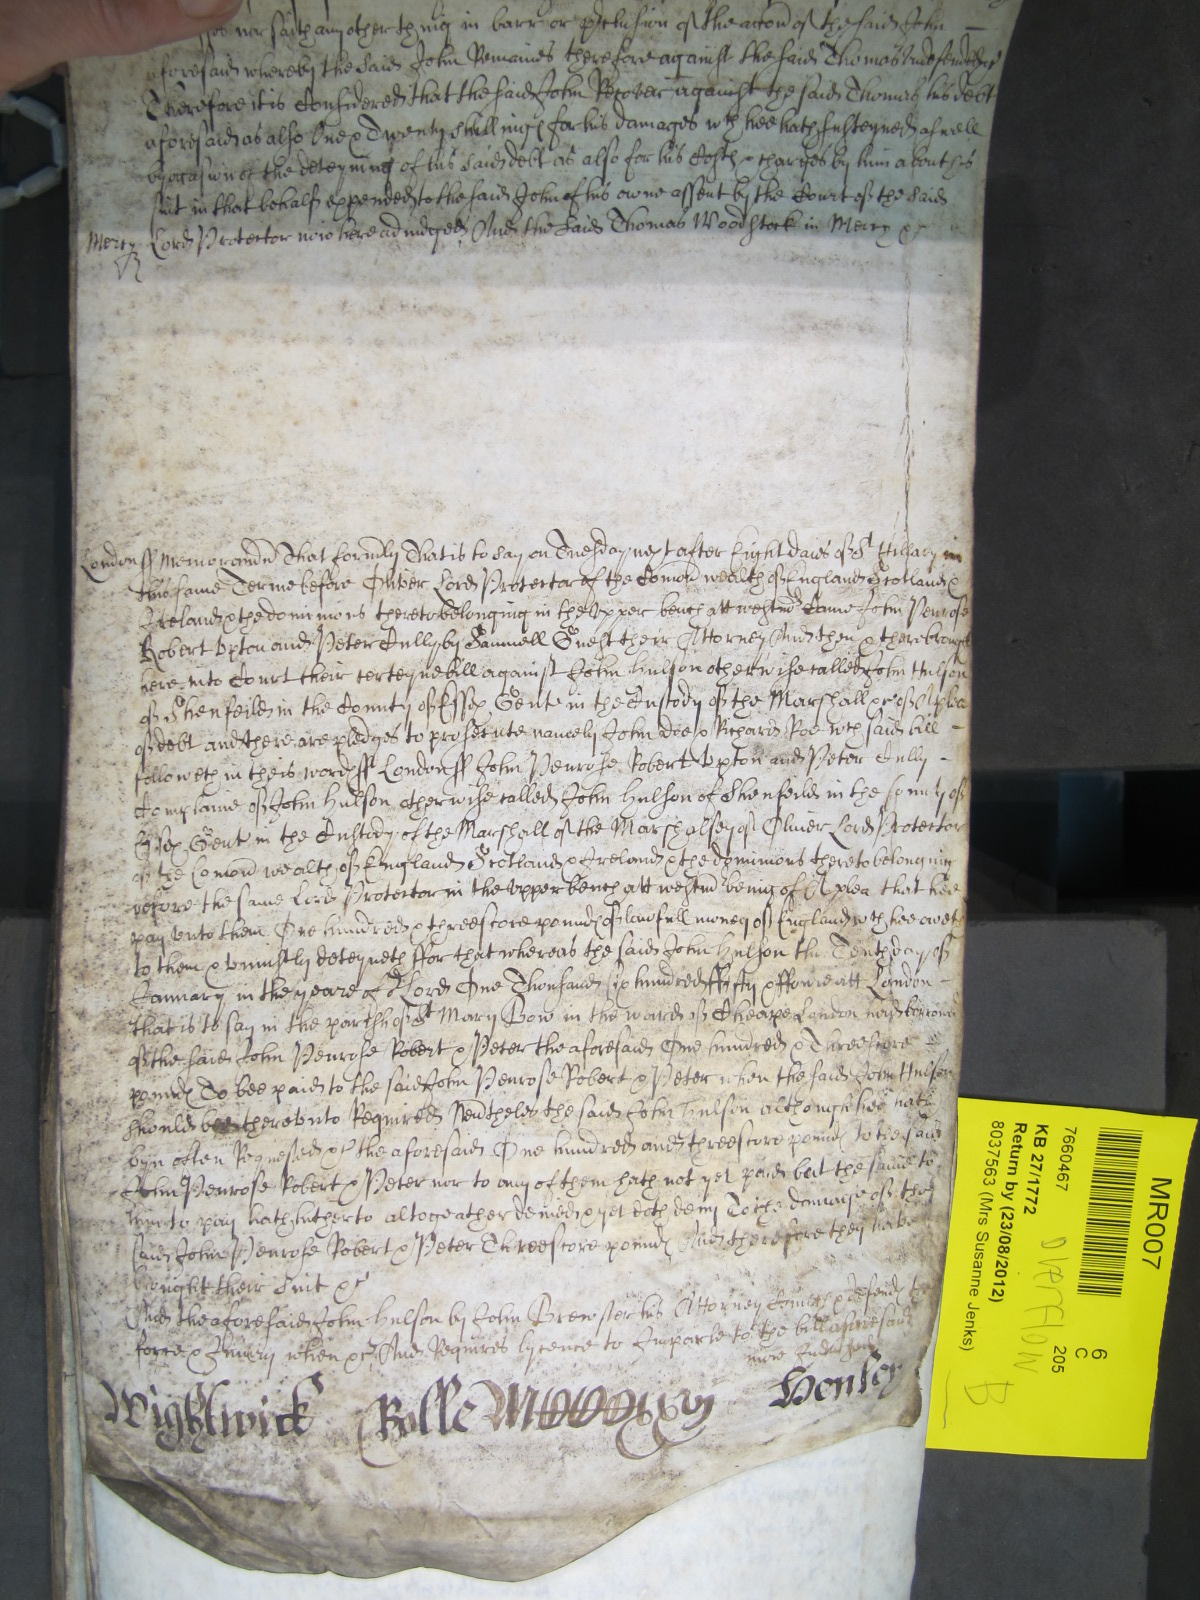 nor saith any other thing in barr or p'clusion of the accon of the said John
aforesaid whereby the said John Remaines therefore against the said Thomas undefended
Therefore it is Considered that the said John Recover against the said Thomas his debt
aforesaid as also One & Twenty shillings for his damages wch hee hath susteyned aswell
by occasion of the deteyning of his said debt as also for his Costs & charges by him about his
suit in that behalf expended to the said John of his owne assent by the Court of the said
Mercy Lord Protector now here adiudged And the said Thomas Woodstock in Mercy &c
London ss Memorand That formerly That is to say on Tuesday next after Eight daies of St Hillary in
this same Terme before Oliver Lord Protector of the Comon wealth of England Scotland &
Ireland & the dominions thereto belonging in the Upper bench att westmr Came John Penrose
Robert Upton and Peter Cully by Samuell Guest their Attorney And then & there brought
here into Court their certeyne bill against John Hulson otherwise called John Hulson
of Shenfeild in the County of Essex Gent in the Custody of the Marshall &c of A plea
of debt and there are pledges to prosecute namely John Doe & Richard Roe wch said bill
followeth in theis words ss London ss John Penrose Robert Upton and Peter Cully
Complaine of John Hulson otherwise called John Hulson of Shenfeild in the County of
Essex Gent in the Custody of the Marshall of the Marshalsey of Oliver Lord Protector
of the Comon wealth of England Scotland & Ireland & the dominions thereto belonging
before the same Lord Protector in the Upper bench att westmr being of A plea that hee
pay unto them One hundred & threescore pounds of lawfull money of England wch hee oweth
to them & uniustly deteyneth ffor that whereas the said John Hulson the Tenth day of
January in the yeare of or Lord One Thousand six hundred ffifty & ffowre att London
that is to say in the parish of St Mary Bow in the ward of Cheape London had borrowed
of the said John Penrose Robert & Peter the aforesaid One hundred & Threescore
pounds To bee paid to the said John Penrose Robert & Peter when the said John Hulson
should bee thereunto Required Nevtheles the said John Hulson although hee hath
byn often Requested &c the aforesaid One hundred and threescore pounds to the said
John Penrose Robert & Peter nor to any of them hath not yet paid but the same to
them to pay hath hitherto altogeather denied & yet doth deny To the damage of the
said John Penrose Robert & Peter Threescore pounds And therefore they have
brought their suit &c
And the aforesaid John Hulson by John Brewster his Attorney Comes & defends the
force & Iniury when &c And Requires lycence to Imparle to the bill aforesaid
Wightwick Rolle Henley
MR007
6
C
205
7660467
KB 27/1772
Return by (23/08/2012)
8037563 (Mrs Susanne Jenks)
OVERFLOW
B